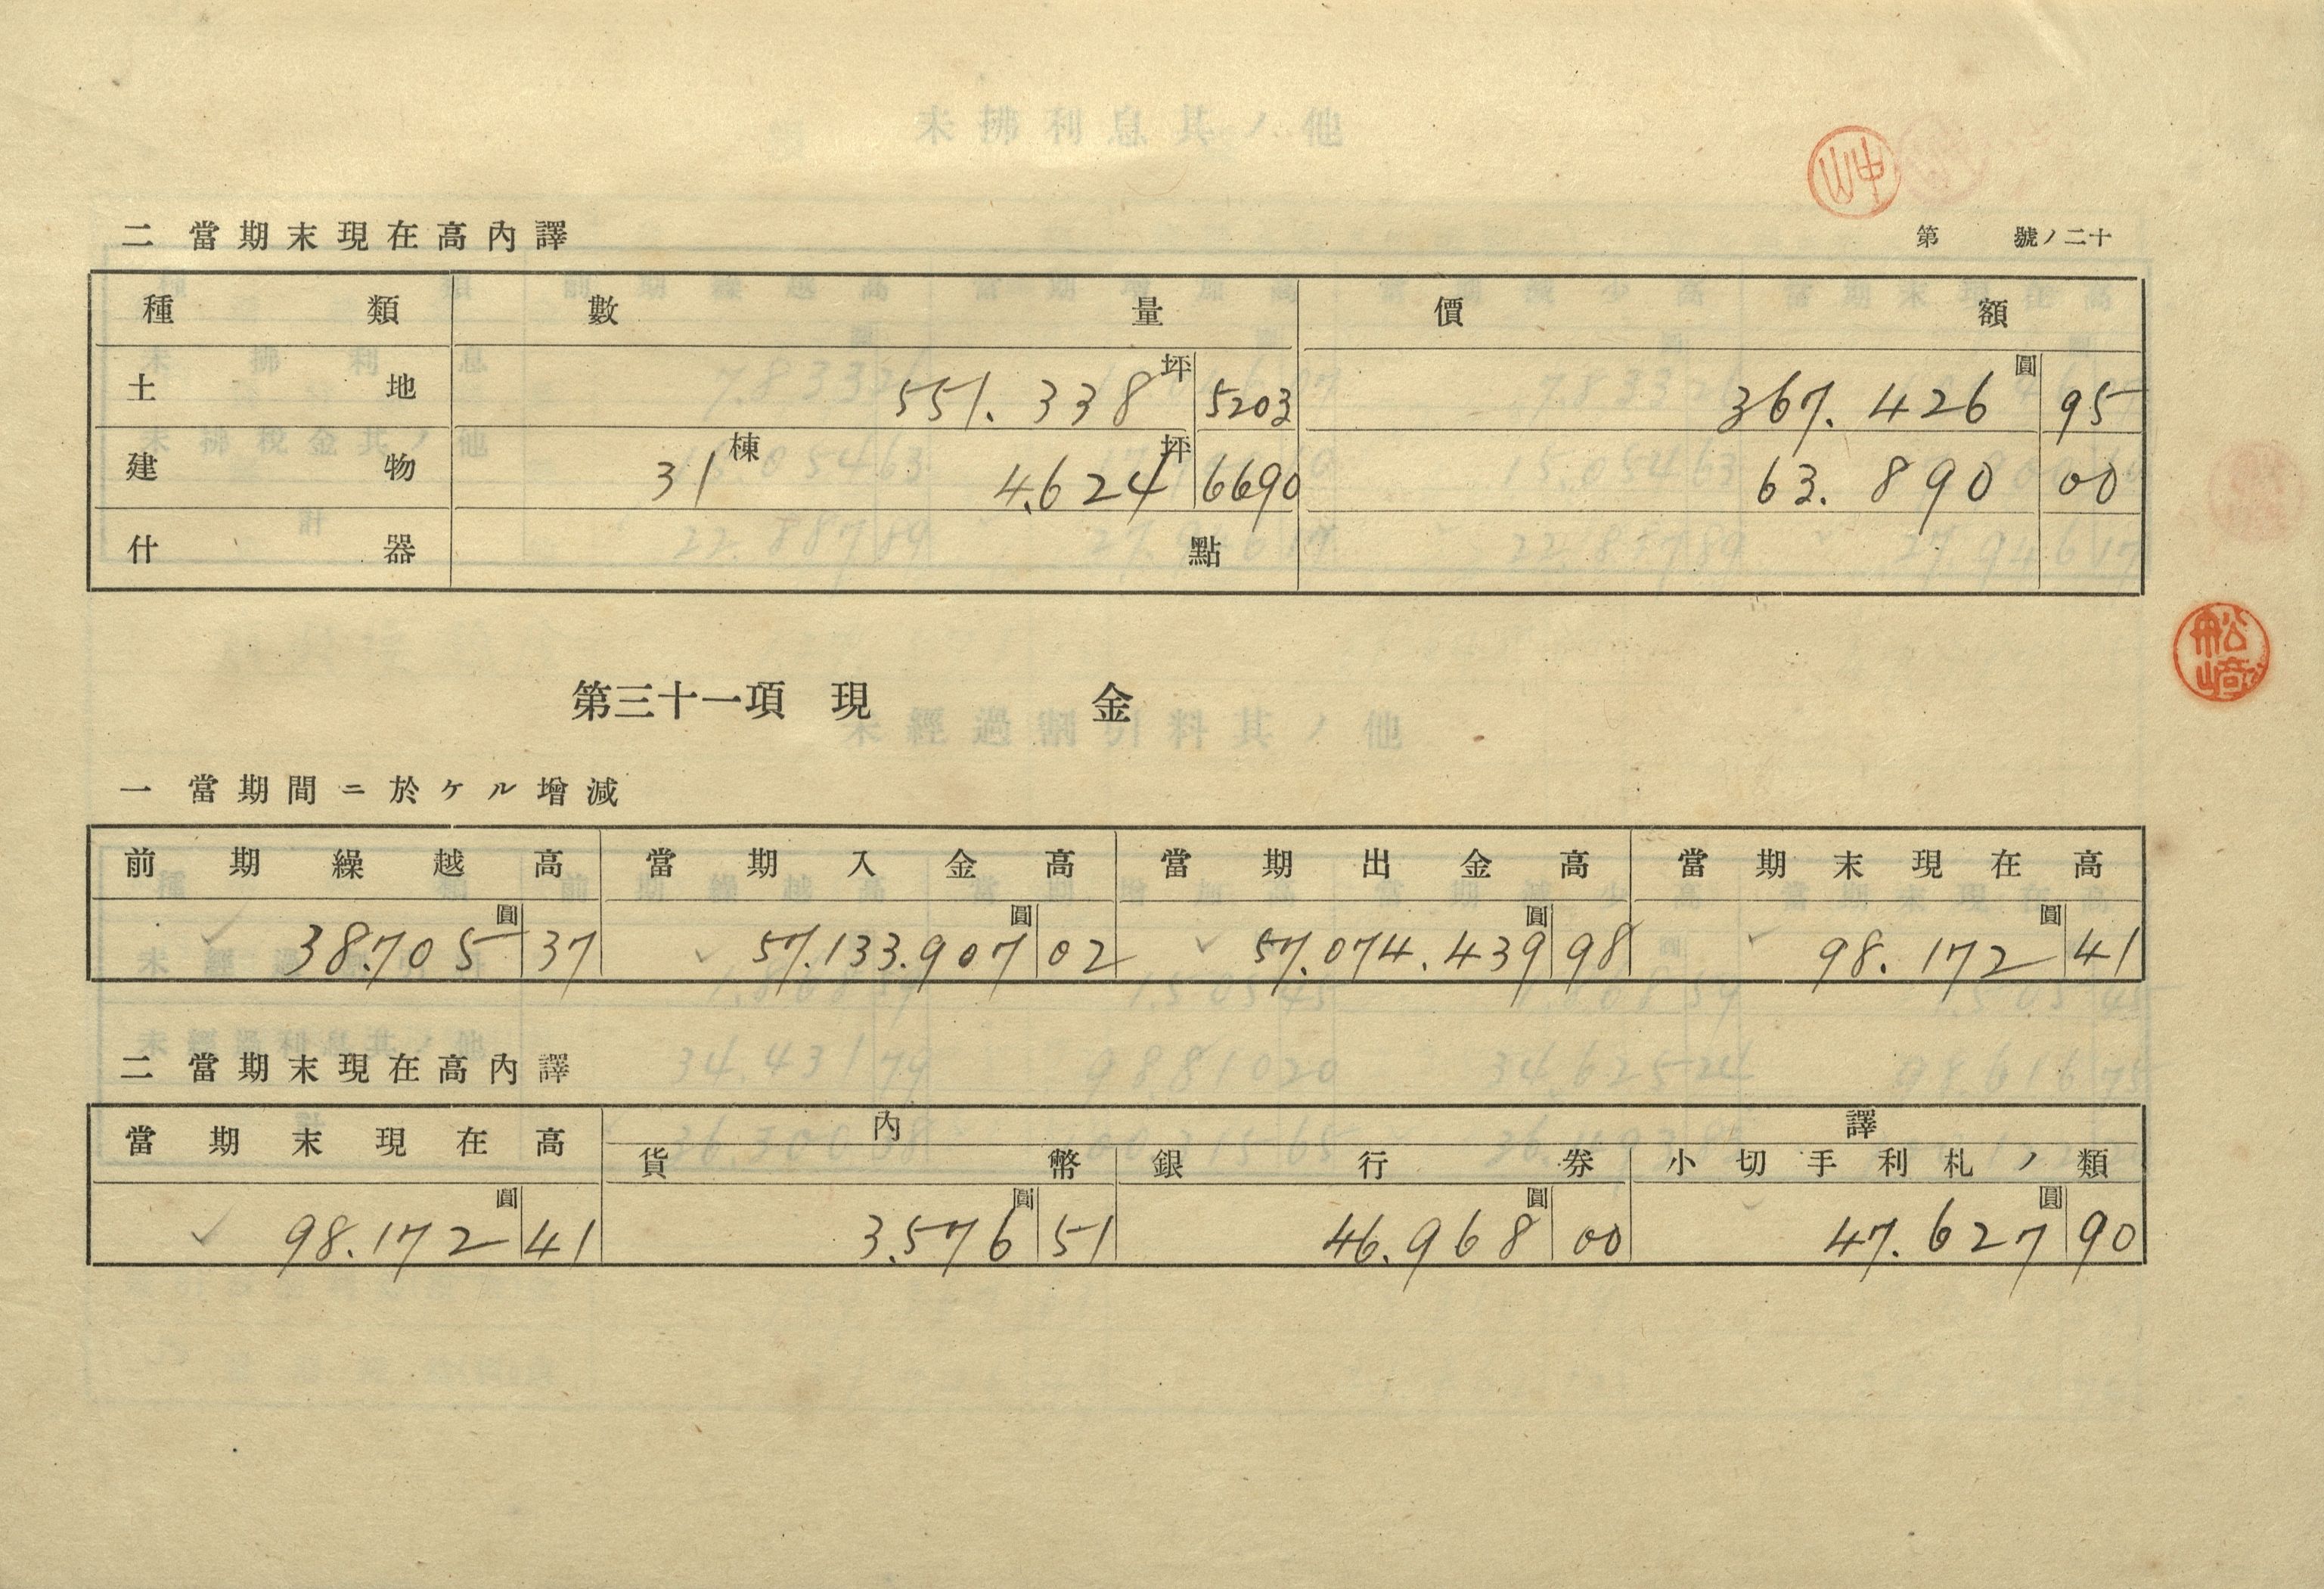 二 當期末現在高內譯
第 號ノ二十
種類 數量 價額
土地 551.338坪5203 367.426圓95
建物 31棟 4.624坪6690 63.890 00
什器 點
第三十一項 現金
一 當期間ニ於ケル增減
前期繰越高 當期入金高 當期出金高 當期末現在高
38.705圓37 57.133.907圓02 57.074.439圓98 98.172圓41
二 當期末現在高內譯
當期末現在高 內譯
貨幣 銀行券 小切手利札ノ類
98.172圓41 3.576圓51 46.968圓00 47.627圓90